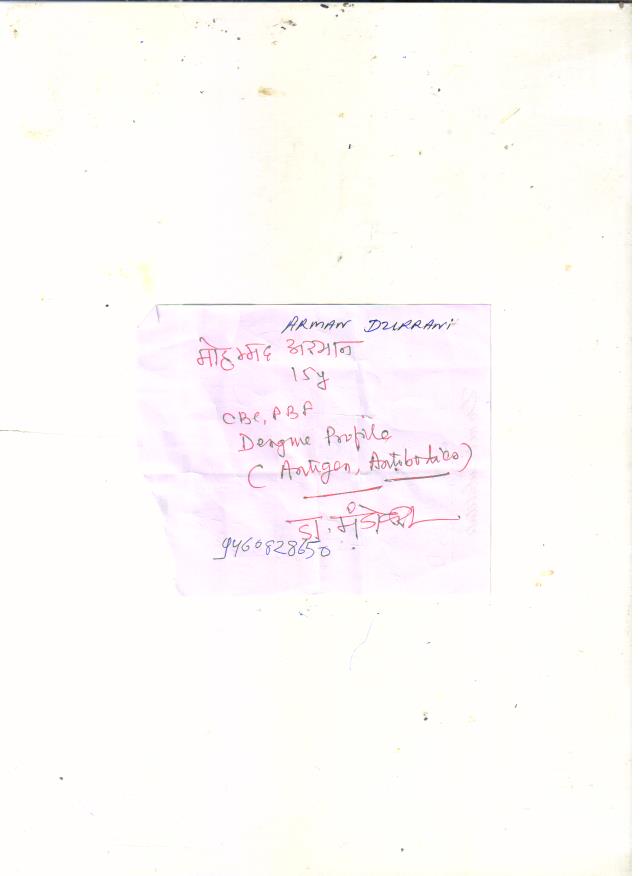 ARMAN DURRANI
मोहम्मद अरमान
15y
CBC, PBF
Dengue Profile
(Antigen, Antibodies)
डा.
9460828650